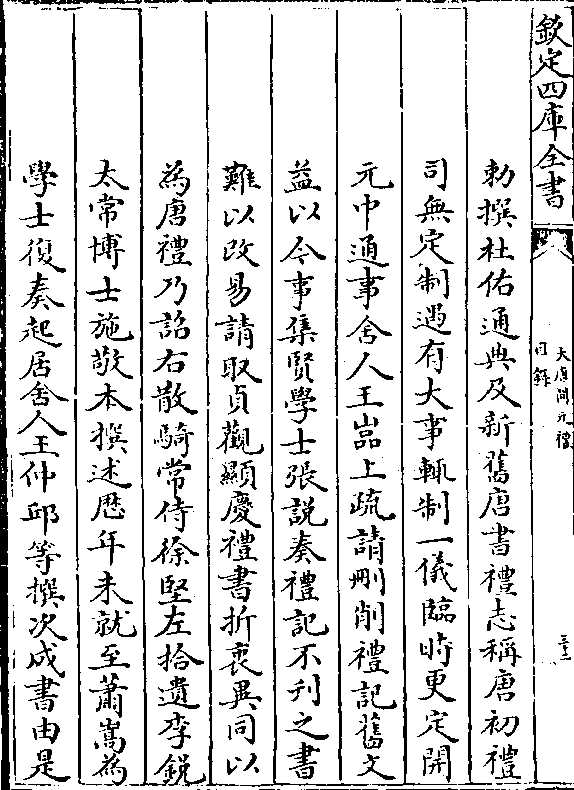 欽定四庫全書
大唐開元禮
目錄
三十二
勅撰杜佑通典及新舊唐書禮志稱唐初禮
司無定制遇有大事輒制一儀臨時更定開
元中通事舍人王嵒上疏請刪削禮記舊文
益以今事集賢學士張説奏禮記不刋之書
難以改易請取貞觀顯慶禮書折衷異同以
為唐禮乃詔右散騎常侍徐堅左拾遺李鋭
太常博士施敬本撰述歴年未就至蕭嵩為
學士復奏起居舍人王仲邱等撰次成書由是